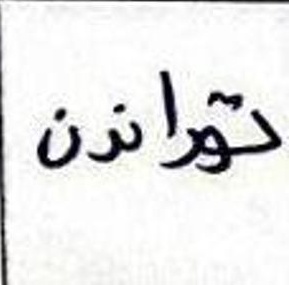 تهراندن